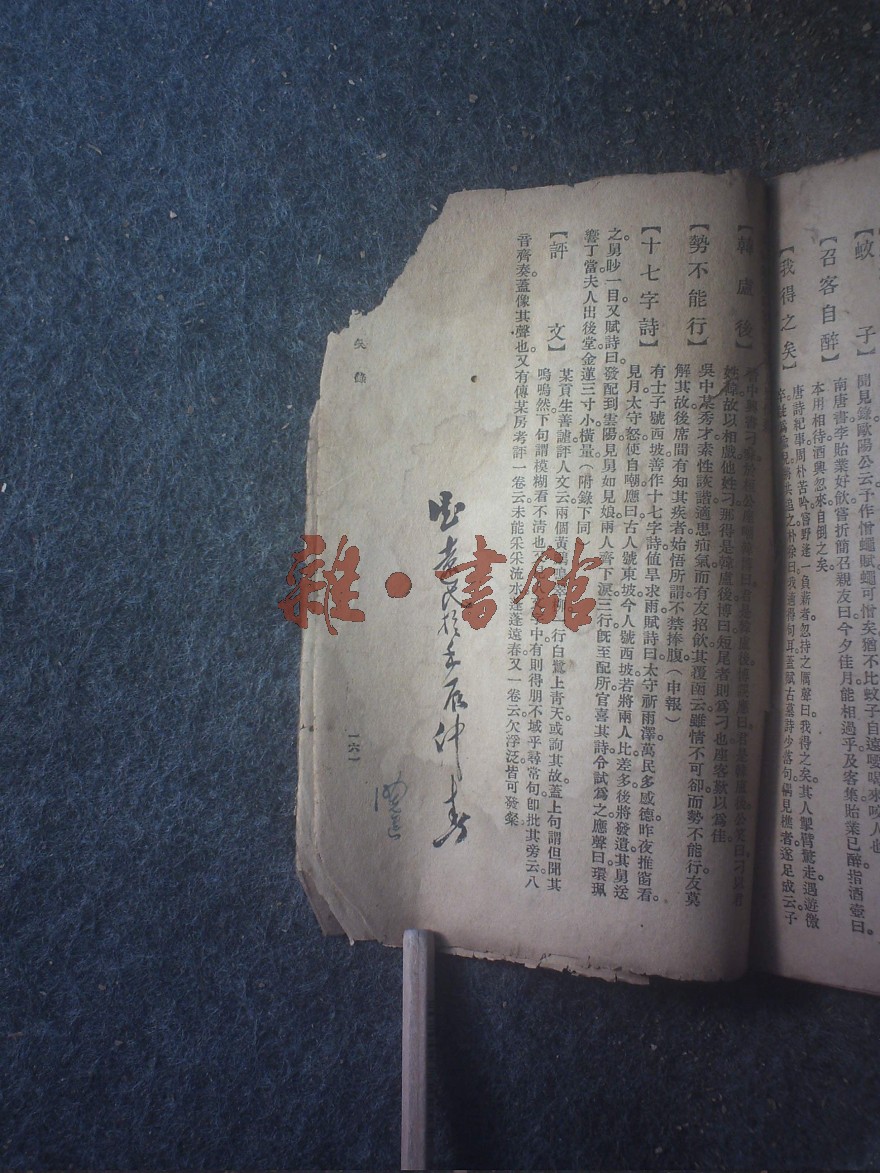 【蚊子】
聞見錄歐陽公云予作憎蠅賦蠅可憎矣猶不比蚊子自遠喓喝來咬人也
【召客自醉】
南唐書李貽業好飲嘗折簡召親友曰今夕佳月能相過乎及客集貽業已醉指酒壺曰。
本用相待酒興忽來自倒之矣。
【我得之矣】
唐詩紀事周朴苦吟。嘗野逢一負薪者。忽持之厲聲曰。我得之矣。其人掣臂驚走。遇遊徼
【韓盧後】
姓韓故以相戲他姓刁那得是韓盧後博曰短尾者則爲刁也座客歎以爲佳
【勢不能行】
吳中某秀才素性詼諧適患疝氣而有友招飲其覆函云雖情不可卻而勢不能行友莫
解其故後席間有知其疾者始悟所謂不禁捧腹（申報）
【十七字詩】
有士子號西坡善作十七字詩値旱求雨賦詩曰太守祈雨澤萬民多感德昨夜推窗看。
見月太守怒使自嘲應曰古人號東坡今人號西坡若將兩人比差多後將發遣其舅送
之。舅眇一目。又賦詩曰。發配到雲陽。見舅如見娘。兩人齊下淚。三行旣至配所官喜其詩令試爲之應聲曰環珮
響丁當夫人出後堂金蓮三寸小橫量（附錄下同）
【評文】
某貢生善謔評人文云兩個黃鸝鳴翠柳一行白鷺上靑天或詢其故蓋上句謂但聞其
嗚嗚然下句謂模糊看不淸也 中有則得朋不域乎尋常句卽批其旁云八
音齊奏蓋像其聲也又有傳某房考評一卷云未能采采流水蓬蓬遠春又一卷云欠浮泛皆可發粲
一六一
雜·書館